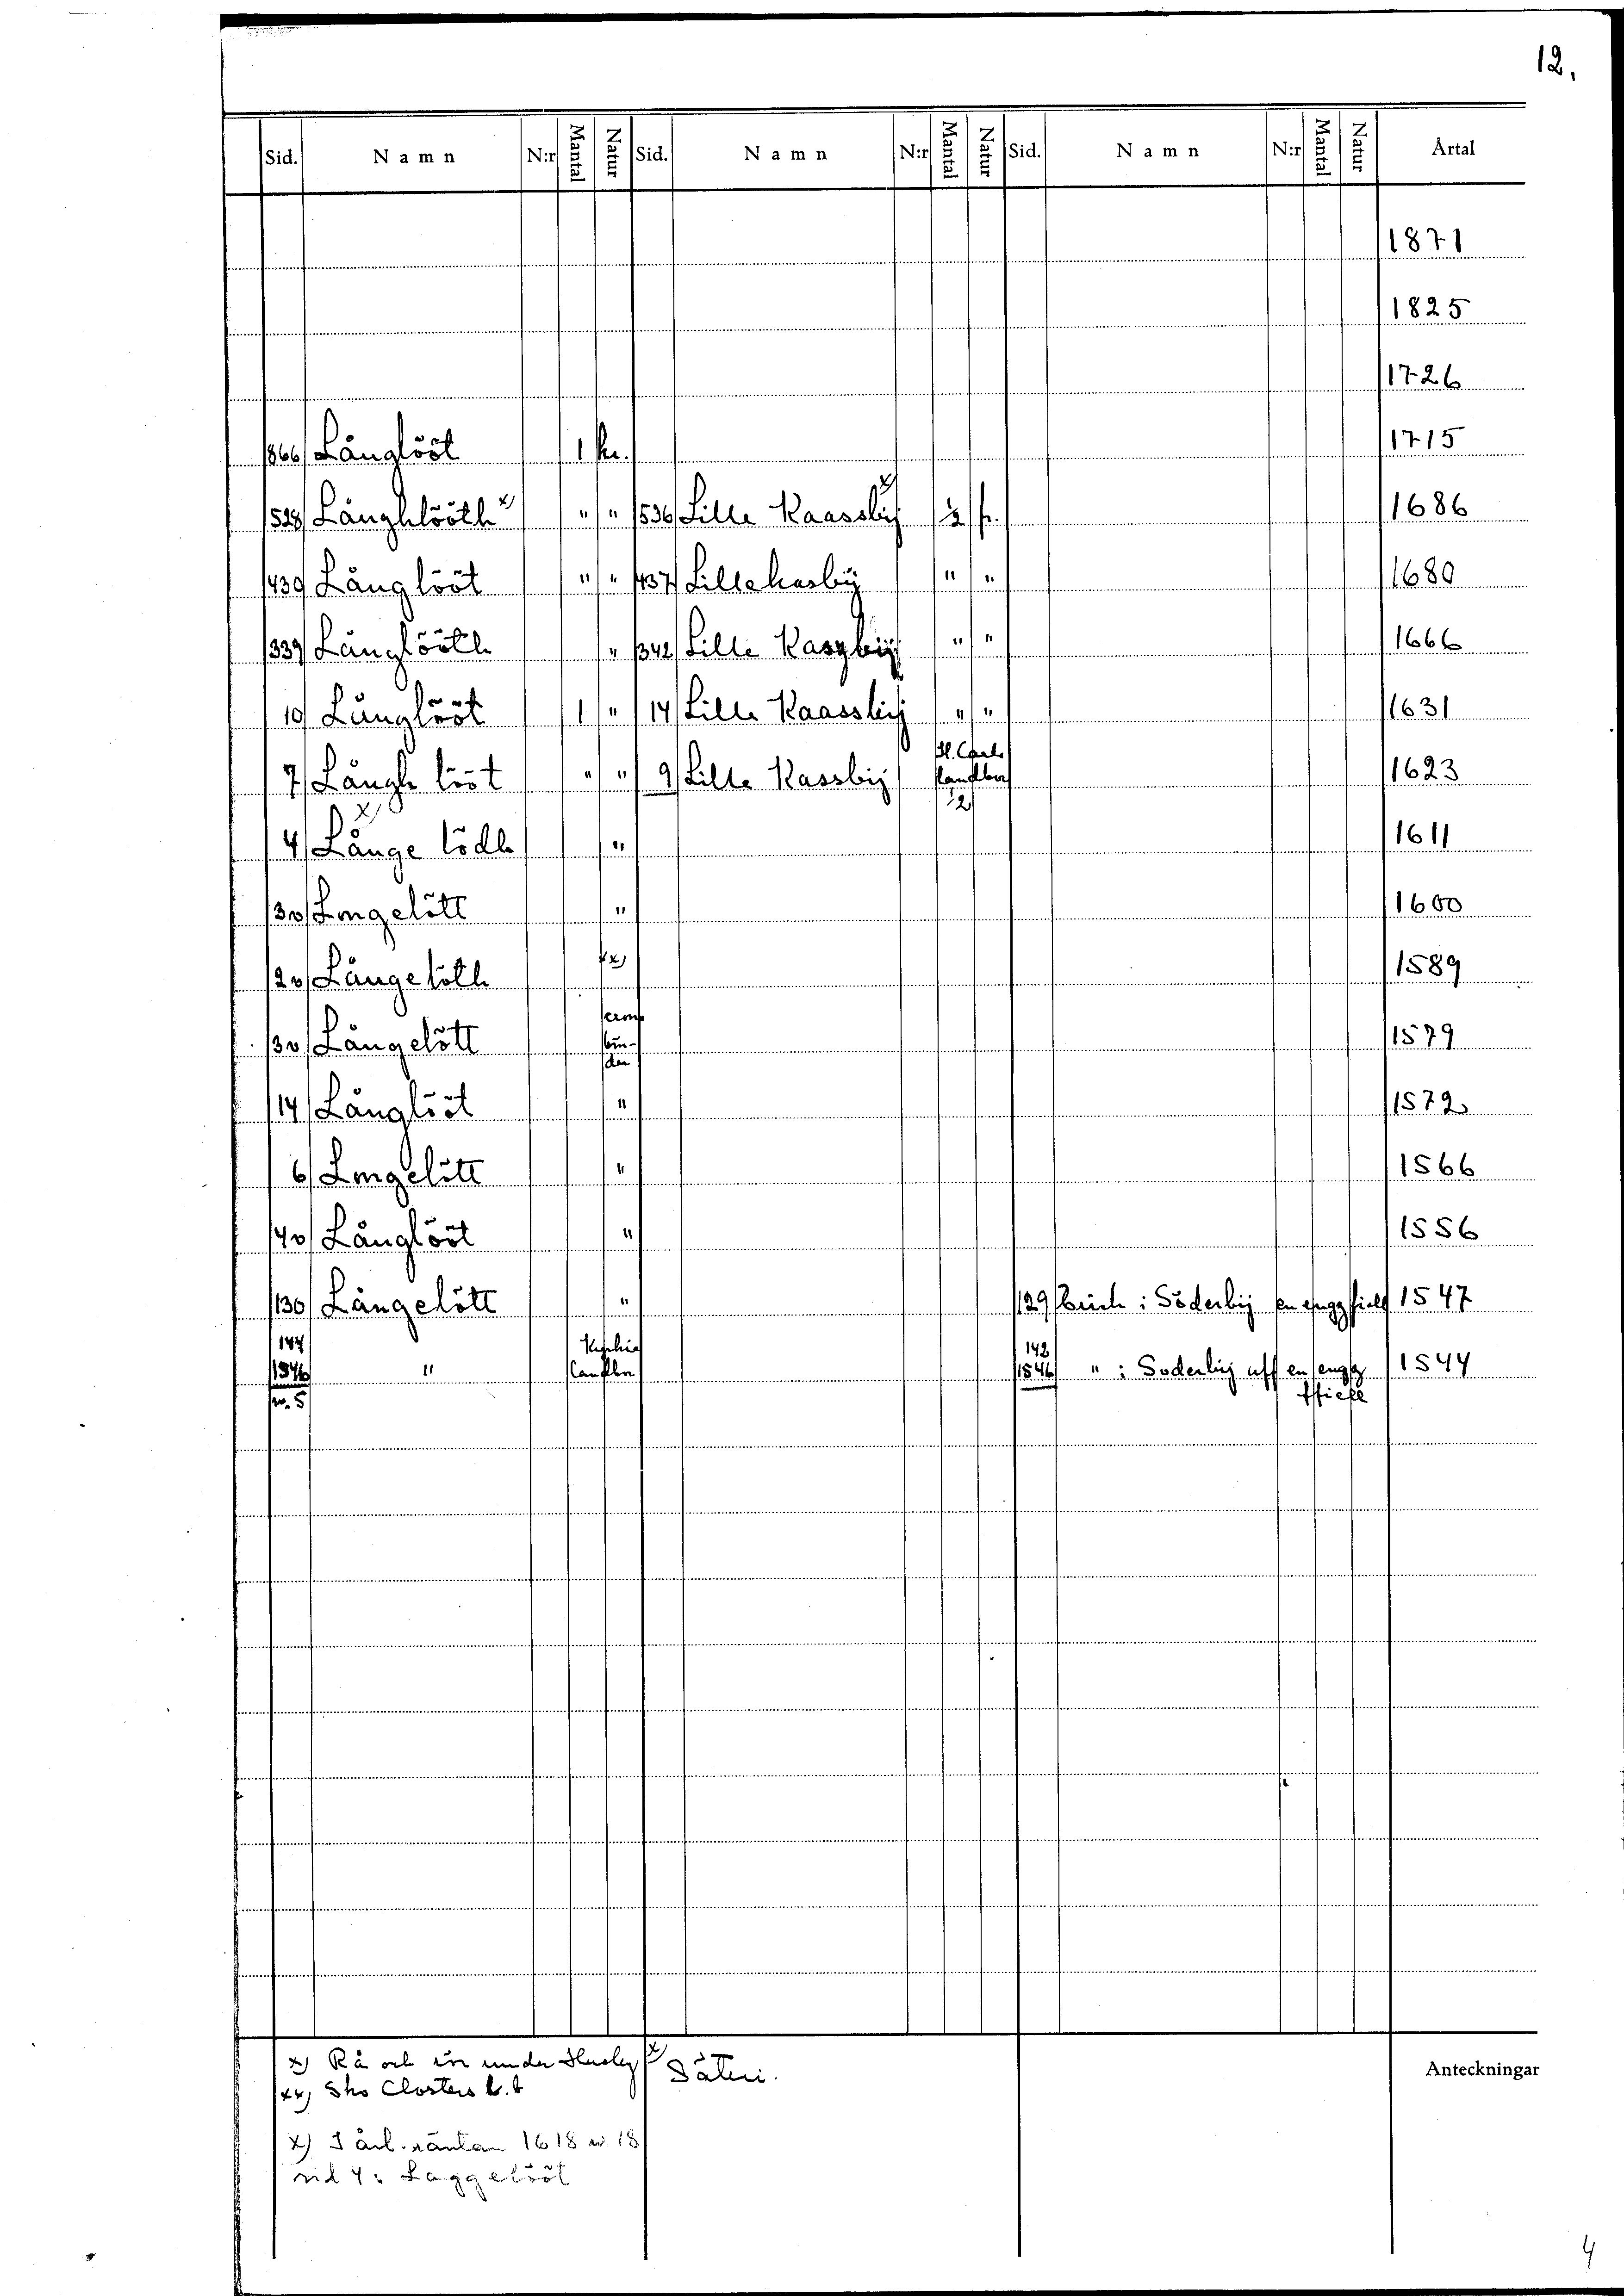 12.
Sid. Namn N:r Mantal Natur Sid. Namn N:r Mantal Natur Sid. Namn N:r Mantal Natur Årtal
1871
1825
1726
866 Långlööt 1 kr. 1715
528 Långhlööth x) " " 536 Lille Kaassbÿ x) ½ fr. 1686
439 Långlööt " " 437 Lillekasbÿ " " 1680
339 Långlööth " 342 Lille Kaszbÿ " " 1666
10 Långlööt 1 " 14 Lille Kaassbij " " 1631
7 Långh lööt " " 9 Lille Kassbij H. Carls landbor ½ 1623
4 Långe lödh x) " 1611
3v Lmgelött " 1600
2v Långelöth xx) 1589
3v Långelött 1579
14 Långlööt " 1572
6 Lmgelött " 1566
4v Långlööt " 1556
130 Långelött " 129 i Söderbij en engg fiell 1547
144 1546 w. 5 " landbor 142 1546 " i Soderbij uff en engg ffiell 1544
x) Rå och rör under Husby x) Säteri. Anteckningar
xx) Sko Closters
x) I årl. räntan 1618 w. 18
sid 4: Laggelööt
4